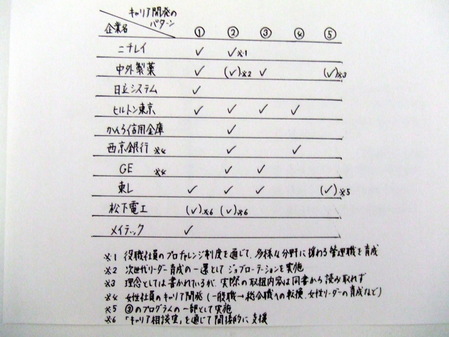 キャリア開発の
パターン
企業名 ① ② ③ ④ ⑤
ニチレイ ✓ ✓※1
中外製薬 ✓ (✓)※2 ✓ (✓)※3
日立システム ✓
ヒルトン東京 ✓ ✓ ✓ ✓
かんら信用金庫 ✓
西京銀行 ※4 ✓ ✓
GE ※4 ✓ ✓
東レ ✓ ✓ ✓ (✓)※5
松下電工 (✓)※6 (✓)※6
メイテック ✓
※1 役職社員のプロチャレンジ制度を通じて、多様な分野に携わる管理職を育成
※2 次世代リーダー育成の一環としてジョブローテーションを実施
※3 理念としては書かれているが、実際の取組内容は同書から読み取れず
※4 女性社員のキャリア開発(一般職→総合職への転換、女性リーダーの育成など)
※5 ③のプログラムの一部として実施
※6 「キャリア相談室」を通じて間接的に支援